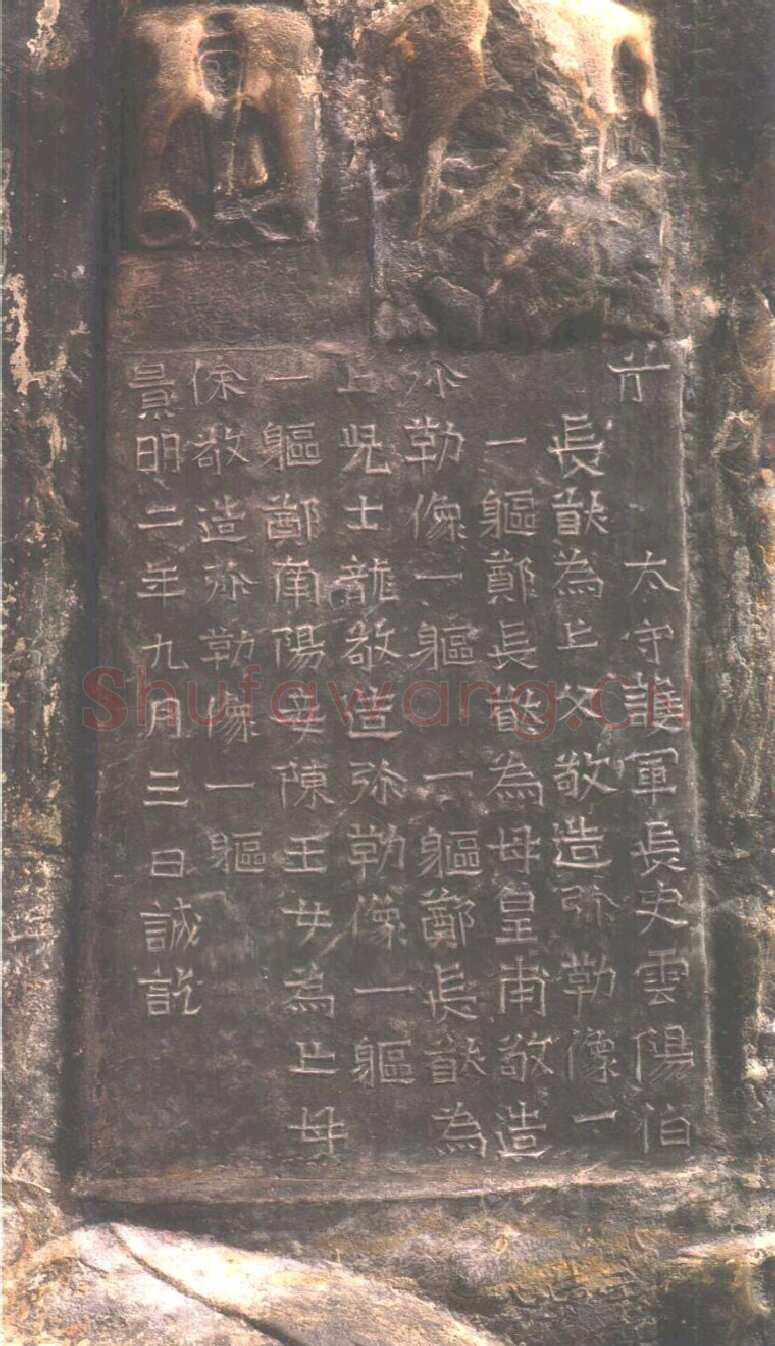 太守護軍長史雲陽伯
長猷為亡父敬造弥勒像一
一軀鄭長猷為母皇甫敬造
弥勒像一軀 一軀鄭長猷為
亡兒士龍敬造弥勒像一軀
一軀鄭南陽妾陳王女為亡母
徐敬造弥勒像一軀
景明二年九月三日誡訖
Shufawang.cn